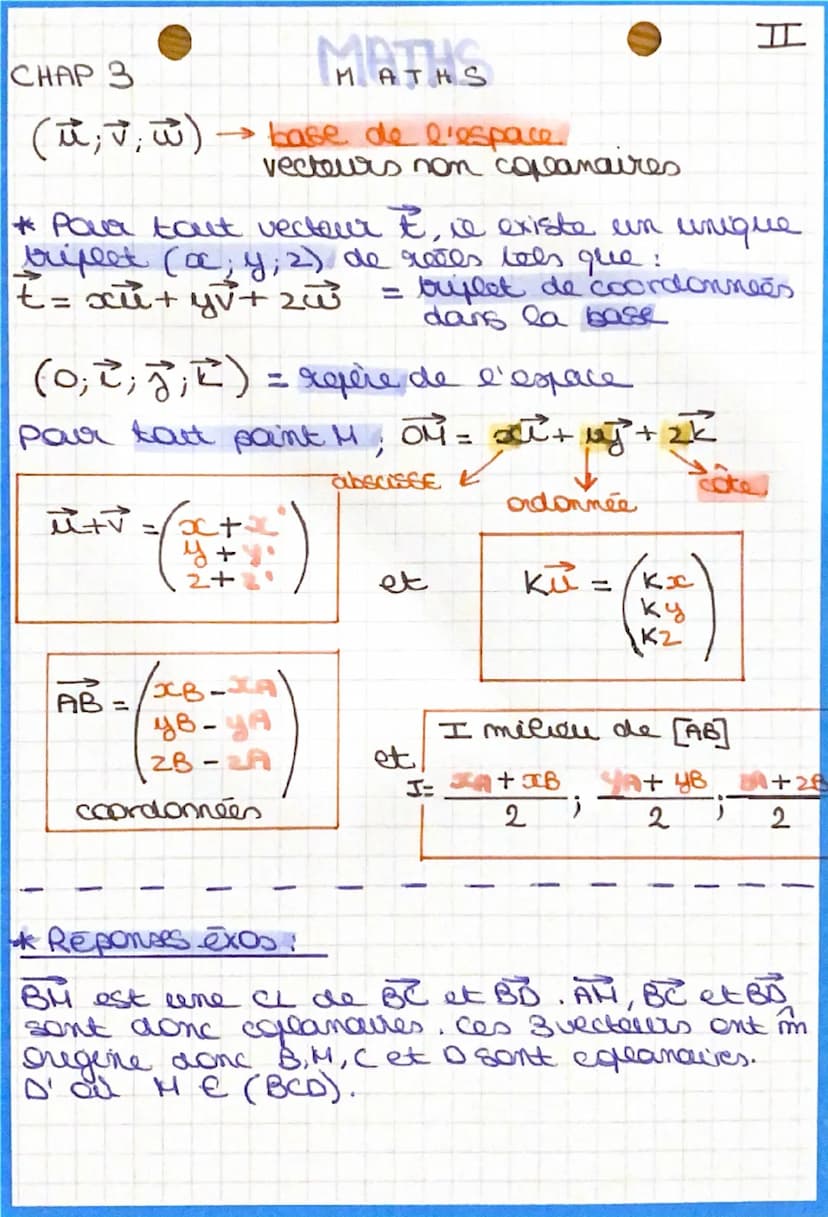 II
MATHS
CHAP 3 MATHS
(u⃗; v⃗; w⃗) → base de l'espace
vecteurs non coplanaires
* Pour tout vecteur t⃗, il existe un unique
triplet (x; y; z) de réels tels que :
t⃗ = xu⃗ + yv⃗ + zw⃗ = triplet de coordonnées
dans la base
(O; i⃗; j⃗; k⃗) = repère de l'espace
Pour tout point M, OM⃗ = xi⃗ + yj⃗ + zk⃗
abscisse ordonnée côte
u⃗+v⃗ = (x + x'
y + y'
z + z')
et
Ku⃗ = (Kx
Ky
Kz)
AB⃗ = (xB - xA
yB - yA
zB - zA)
coordonnées
et
I milieu de [AB]
I = xA + xB / 2 ; yA + yB / 2 ; zA + zB / 2
* Réponses exos :
BM⃗ est une CL de BC⃗ et BD⃗. AM⃗, BC⃗ et BD⃗
sont donc coplanaires. Ces 3 vecteurs ont m̂
origine donc B, M, C et D sont coplanaires.
D'où M ∈ (BCD).